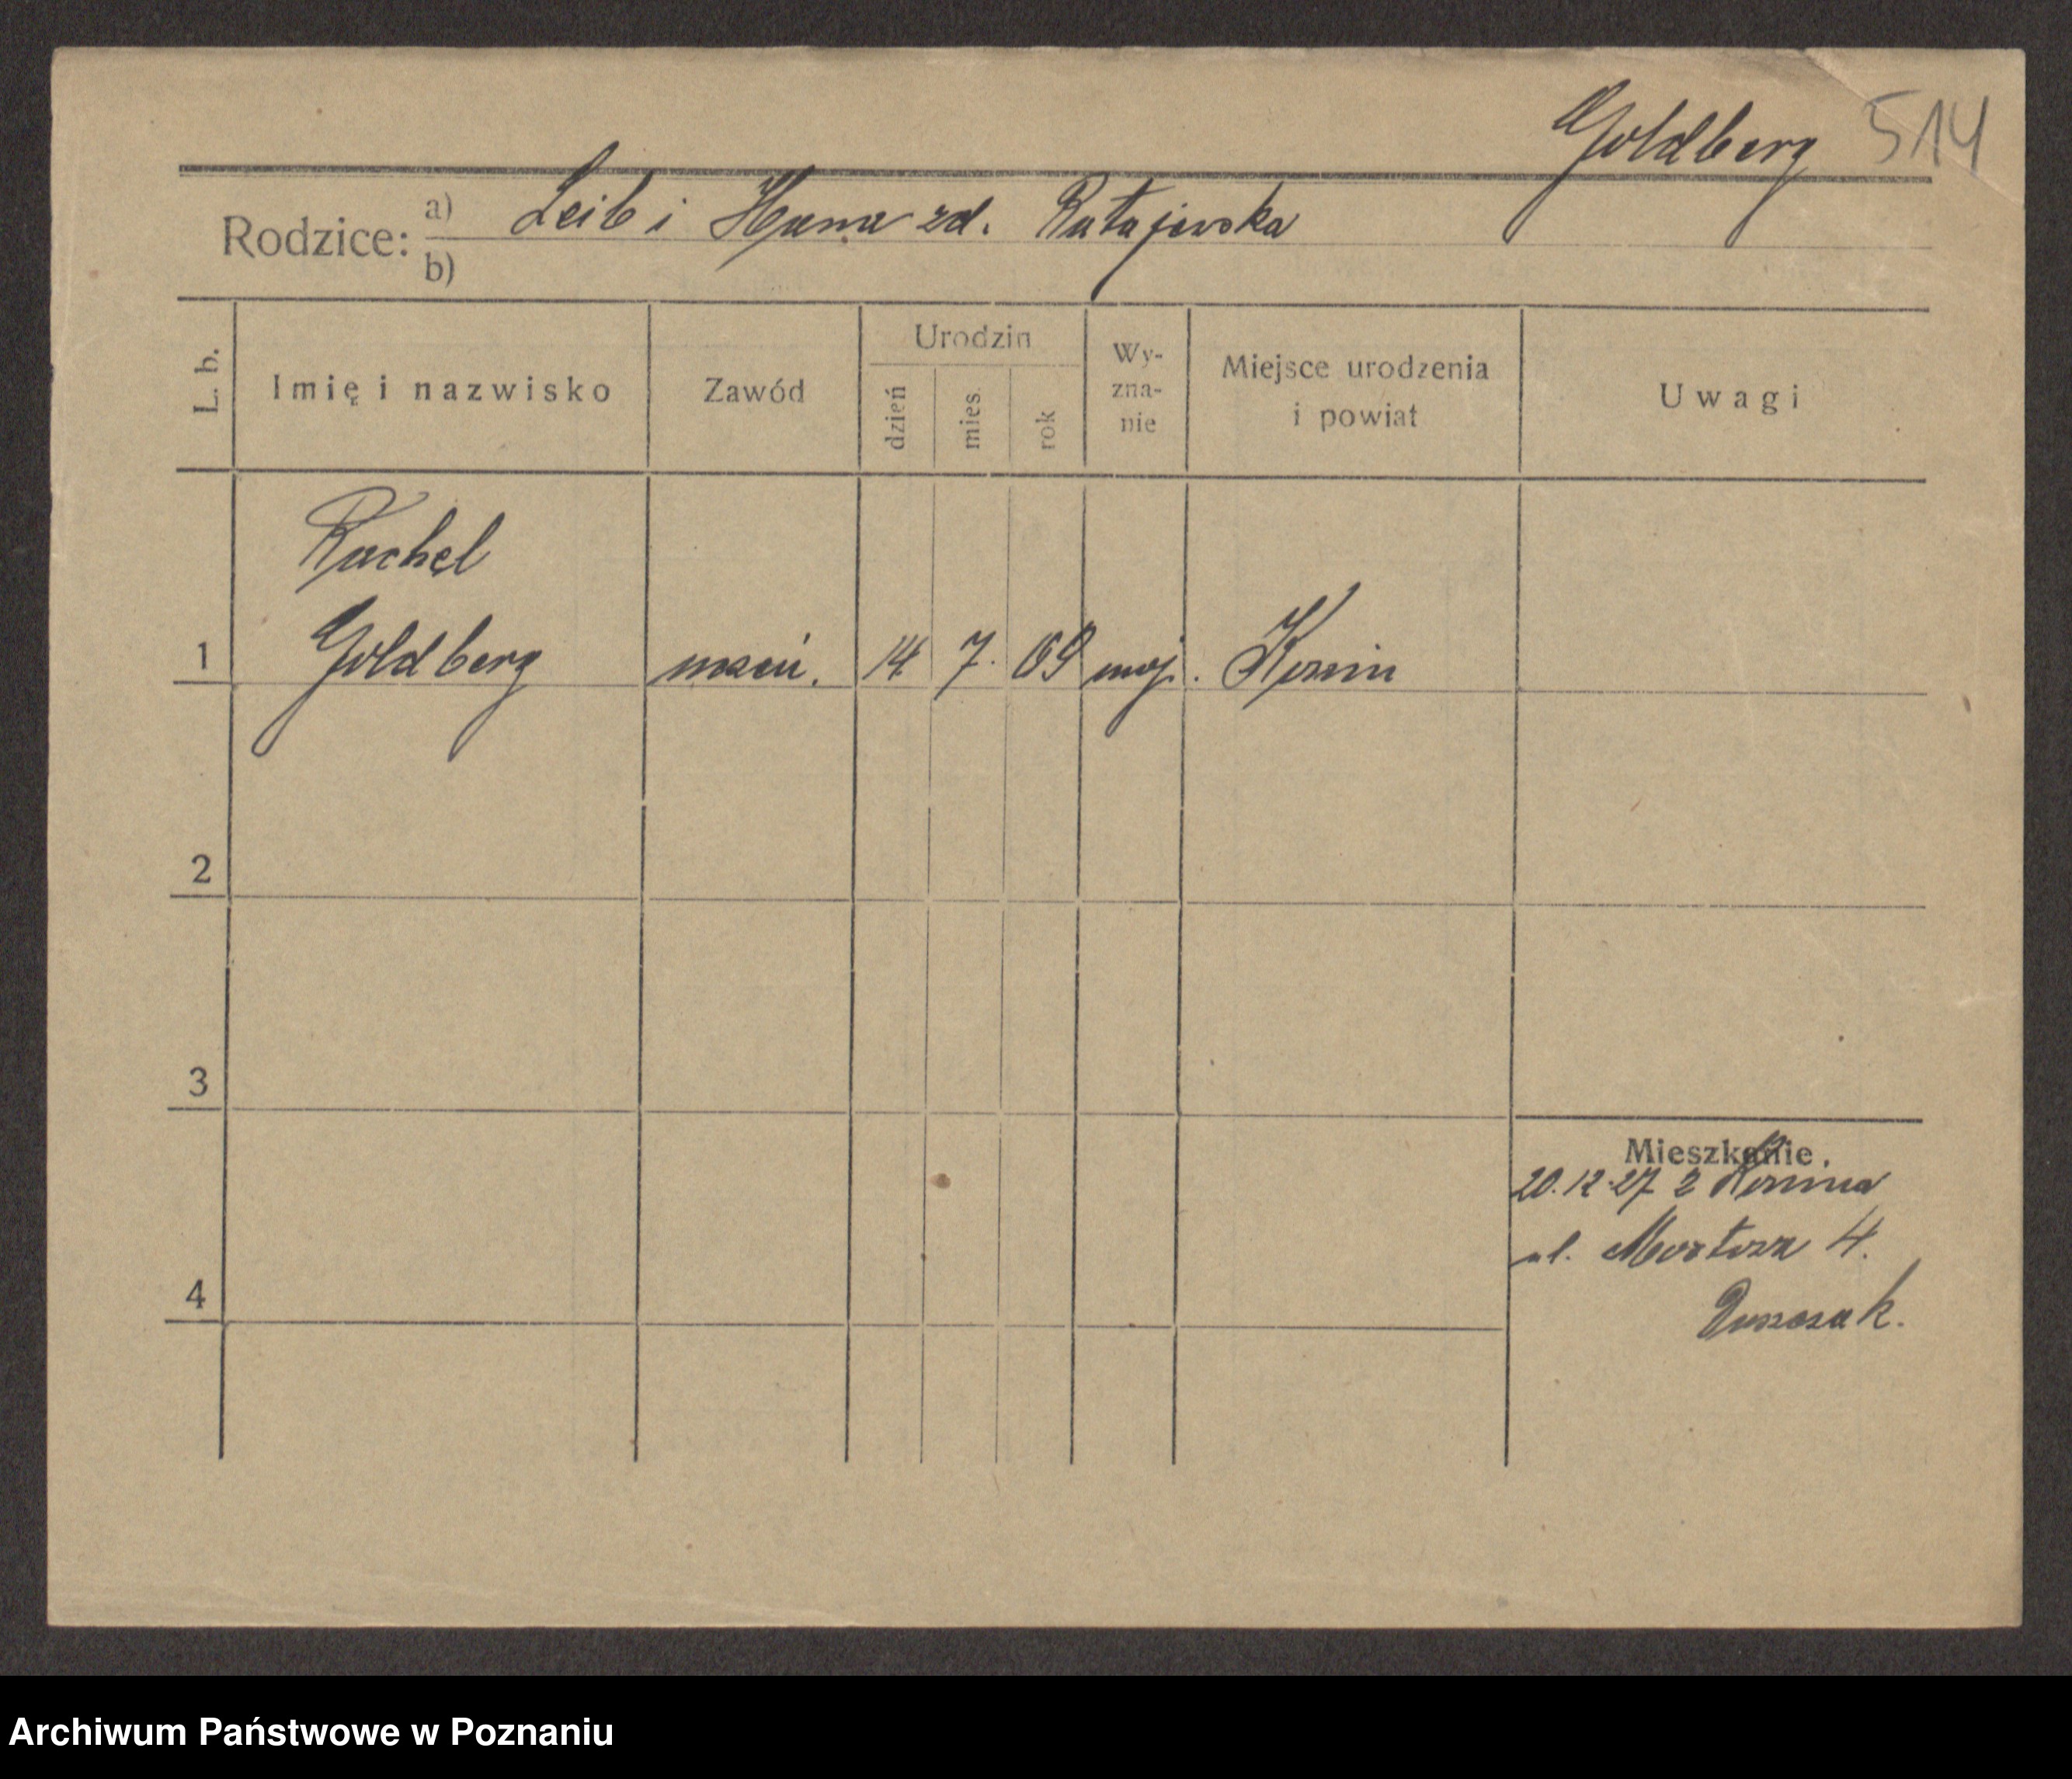 Goldberg 514
Rodzice: a) Leib i Hana zd. Ratajewska
b)
L. b. Imię i nazwisko Zawód Urodzin dzień mies. rok Wy-zna-nie Miejsce urodzenia i powiat Uwagi
Rachel
1 Goldberg uczeń. 14 7. 09 moj. Konin
2
3
Mieszkanie.
20.12.27 z Konina
ul. Mostowa 4.
4
Archiwum Państwowe w Poznaniu